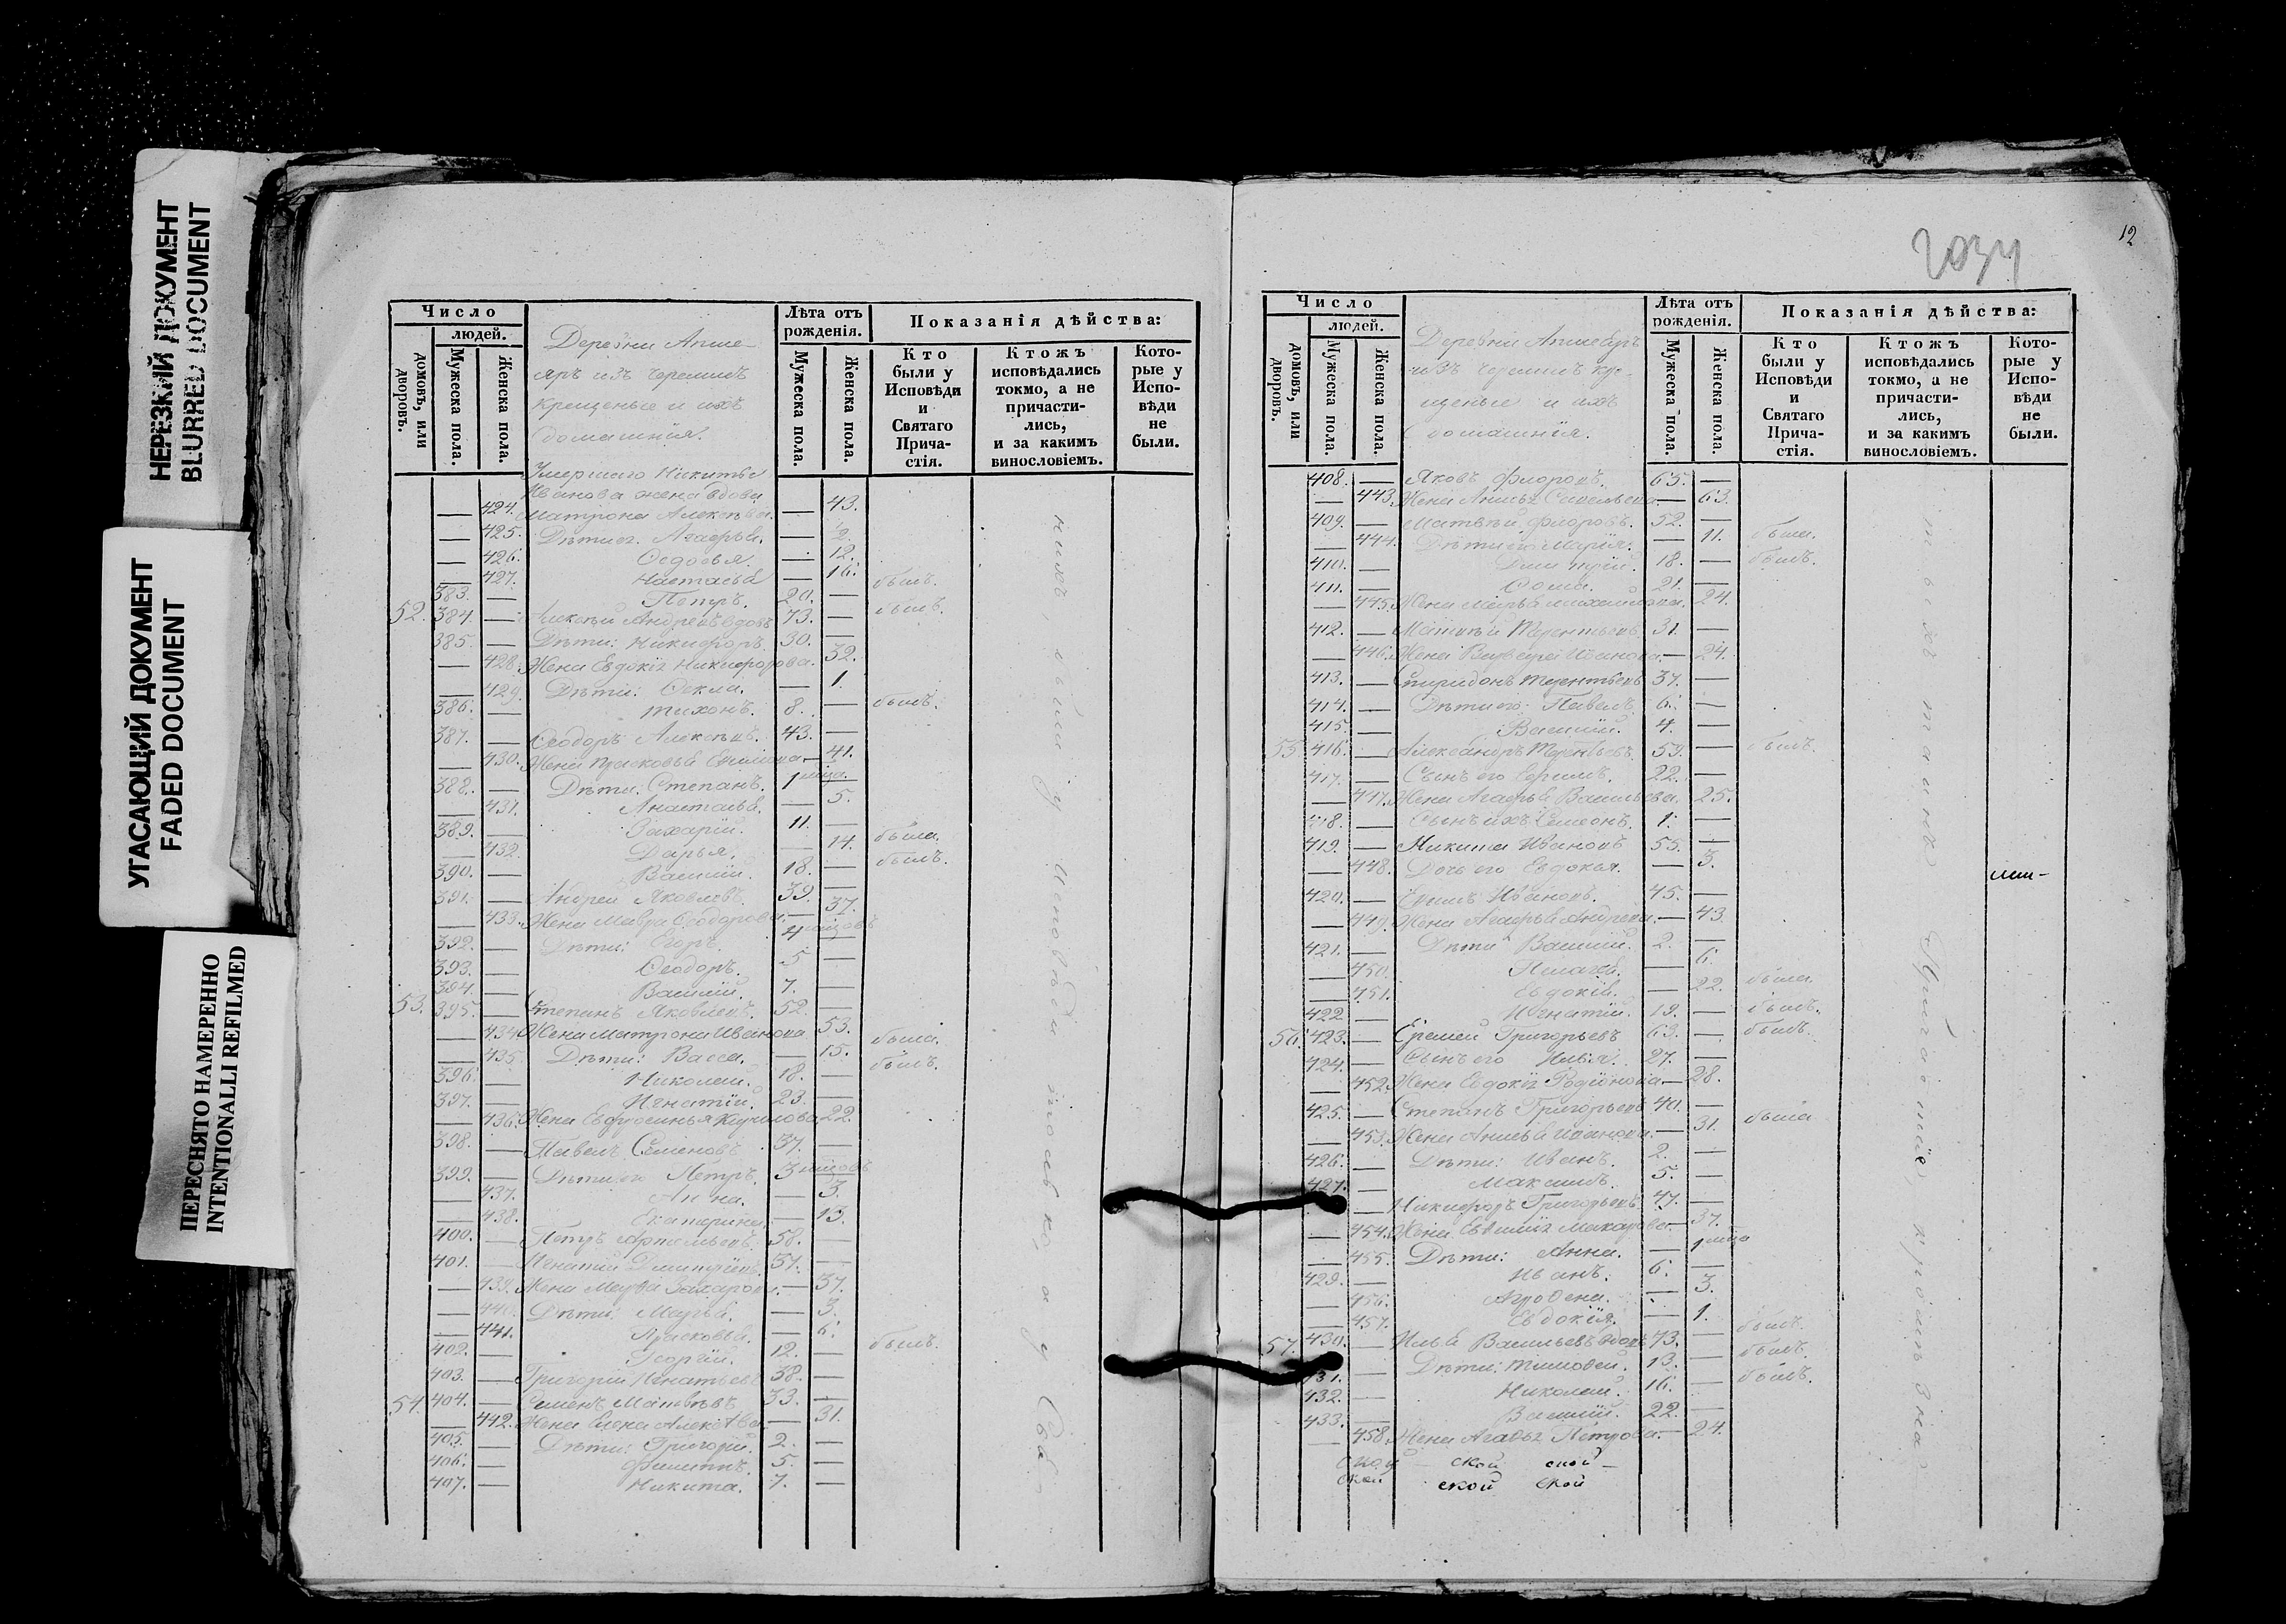 НЕРЕЗКИЙ ДОКУМЕНТ
BLURRED DOCUMENT
УГАСАЮЩИЙ ДОКУМЕНТ
FADED DOCUMENT
ПЕРЕСНЯТО НАМЕРЕННО
INTENTIONALLI REFILMED
Число
людей.
домовъ, или дворовъ.
Мужеска пола.
Женска пола.
Деревни Апше-
яръ изъ черемисъ
крещеные и ихъ
домашнія.
Лѣта отъ рожденія.
Мужеска пола.
Женска пола.
Показанія дѣйства:
Кто были у Исповѣди и Святаго Прича-стія.
Ктожъ исповѣдались токмо, а не причасти-лись, и за какимъ винословіемъ.
Кото-рые у Испо-вѣди не были.
Умершаго Никиты
Иванова жена вдова
424. Матрона Алексѣева. — 43.
— 425. Дѣти ея: Агафья. — 2.
— 426. Федосья. — 12.
— 427. Настасья — 16. была.
383. — Петръ. 20. — былъ.
52. 384. — Алексѣй Андреевъ вдовъ 73. —
385. — Дѣти: Никифоръ. 30. —
— 428. Жена Евдокія Никифорова. 32.
— 429. Дѣти: Фекла. — 1.
386. — Тихонъ. 8. — былъ.
387. — Ѳеодоръ Алексѣевъ. 43. —
— 430. Жена Прасковья — 41.
388. — Дѣти: Степанъ. 1 мѣсца
— 431. Анастасья. — 5.
389. — Захарій. 11. —
— 432. Дарья. — 14. была.
390. — Василій. 18. — былъ.
391. — Андрей Яковлевъ. 39. —
— 433. Жена Мавра Ѳеодорова. — 37.
392. — Дѣти: Егоръ. 4 мѣсцовъ
393. — Ѳеодоръ. 5 —
394. — Василій. 7. —
53. 395. — Степанъ Яковлевъ. 52. —
— 434. Жена Матрона Иванова 53.
— 435. Дѣти: Васса. — 15. была.
396. — Николай. 18. — былъ.
397. — Игнатій. 23. —
— 436. Жена Евфросинья Кирилова 22.
398. — Павелъ Семеновъ. 37. —
399. — Дѣти его Петръ. 3 мѣсцовъ
— 437. Анна. — 3.
— 438. Екатерина. — 13.
400. — Петръ Артемьевъ. 58. —
401. — Игнатій Дмитріевъ. 37. —
— 439. Жена Марфа Захарова. — 37.
— 440. Дѣти: Марья. — 3.
— 441. Прасковья. — 6.
402. — Георгій. 12. — былъ.
403. — Григорій Игнатьевъ 38. —
54. 404. — Семенъ Матвѣевъ 33. —
— 442. Жена Елена Алексѣева. — 31.
405. — Дѣти: Григорій. 2. —
406. — Филиппъ. 5. —
407. — Никита. 7. —
нихъ, были у исповѣди только а у Свя-
12
Число
людей.
домовъ, или дворовъ.
Мужеска пола.
Женска пола.
Деревни Апшеяръ
изъ черемисъ кре-
щеные и ихъ
домашнія.
Лѣта отъ рожденія.
Мужеска пола.
Женска пола.
Показанія дѣйства:
Кто были у Исповѣди и Святаго Прича-стія.
Ктожъ исповѣдались токмо, а не причасти-лись, и за какимъ винословіемъ.
Кото-рые у Испо-вѣди не были.
408. — Яковъ Флоровъ. 65. —
— 443. Жена Анисья Савельева. — 63.
409. — Матвѣй Флоровъ. 52. —
— 444. Дѣти его Марія. — 11. была.
410. — Дмитрій. 18. — былъ.
411. — Фома. 21. —
— 445. Жена Марья Михайлова. 24.
412. — Матвѣй Терентьевъ. 31. —
— 446. Жена Варвара Иванова. — 24.
413. — Спиридонъ Терентьевъ 37. —
414. — Дѣти его: Павелъ. 6. —
415. — Василій. 4. —
55. 416. — Александръ Терентьевъ. 59. — былъ.
417. — Сынъ его 22. —
— 447. Жена Агафья Васильева. 25.
418. — Сынъ ихъ Симеонъ. 1. —
419. — Никита Ивановъ 55. —
— 448. Дочь его Евдокія. — 3.
420. — Ивановъ. 45. —
— 449. Жена Агафья Андреева. — 43.
421. — Дѣти Василій. 2. —
— 450. Пелагея. — 6.
— 451. Евдокія. — 22. была.
422. — Игнатій. 19. — былъ.
56. 423. — Еремей Григорьевъ 63. — былъ.
424. — Сынъ его Илья. 27. —
— 452. Жена Евдокія Родіонова — 28.
425. — Степанъ Григорьевъ 40. —
— 453. Жена Анисья Иванова. — 31. была
426. — Дѣти: Иванъ. 2. —
427. — Максимъ. 5. —
— Никифоръ Григорьевъ 47. —
— 454. Жена Евфимія Макарова — 37.
— 455. Дѣти: Анна. — 1 мѣсца
429. — Иванъ. 6. —
— 456. Агрофена. — 3.
— 457. Евдокія. — 1.
57. 430. — Илья Васильевъ вдовъ 73. — былъ.
431. — Дѣти: Тимофей. 13. — былъ.
432. — Николай. 16. — былъ.
433. — Василій. 22. —
— 458. Жена Агафья Петрова. — 24.
ской ской
ской ской
тыхъ таинъ